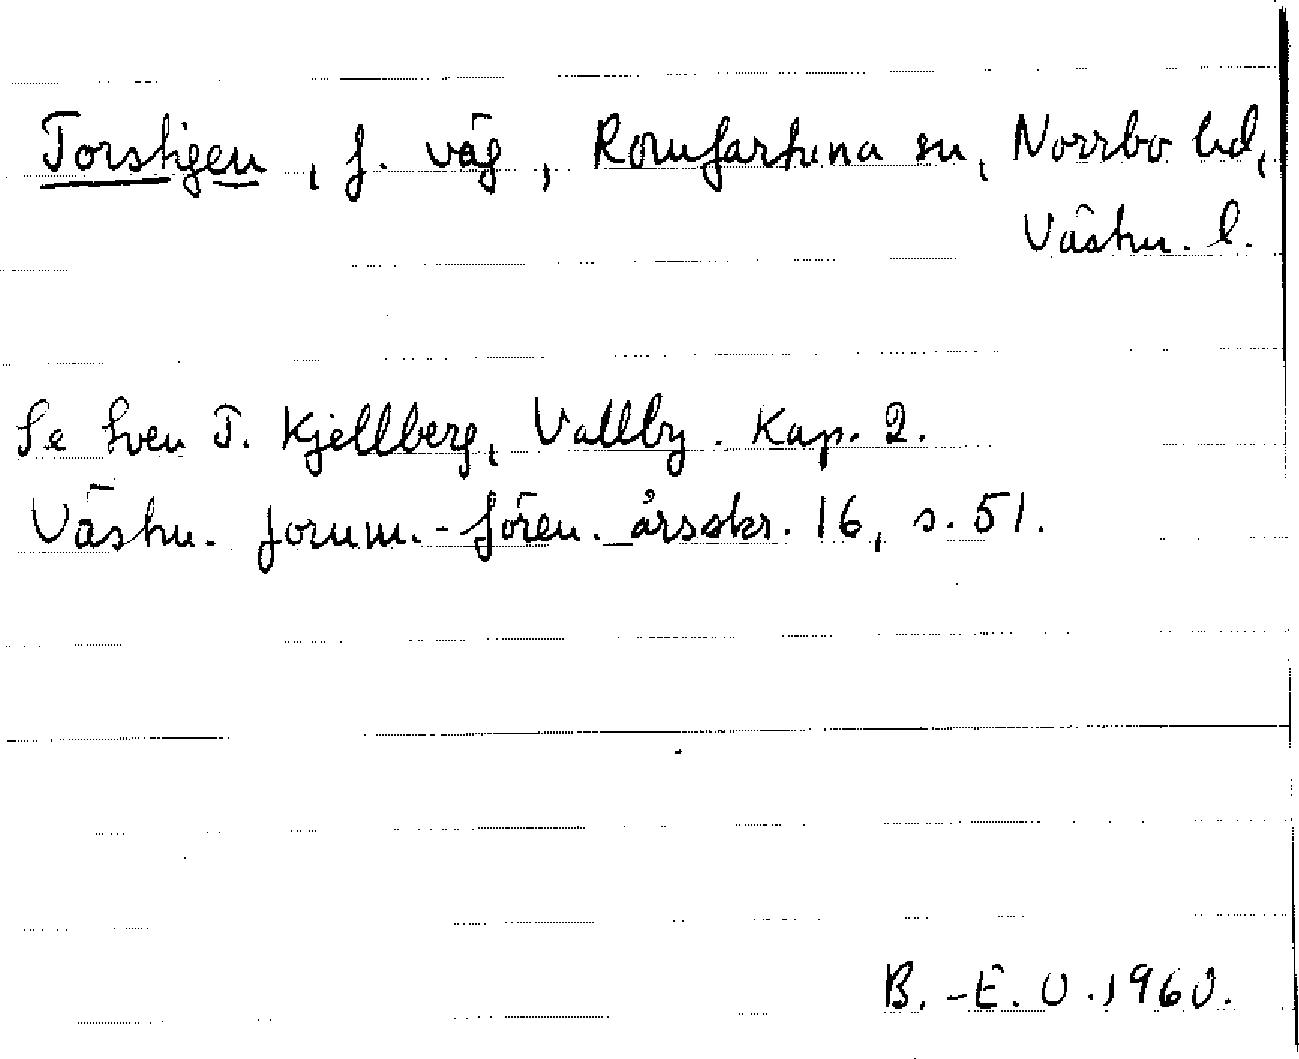 Torstigen, f. väg, Romfartuna sn, Norrbo hd,
Västm. l.
Se Sven T. Kjellberg, Vallby. Kap. 2.
Västm. fornm.-fören. årsskr. 16, s. 51.
B.-E. O. 1960.